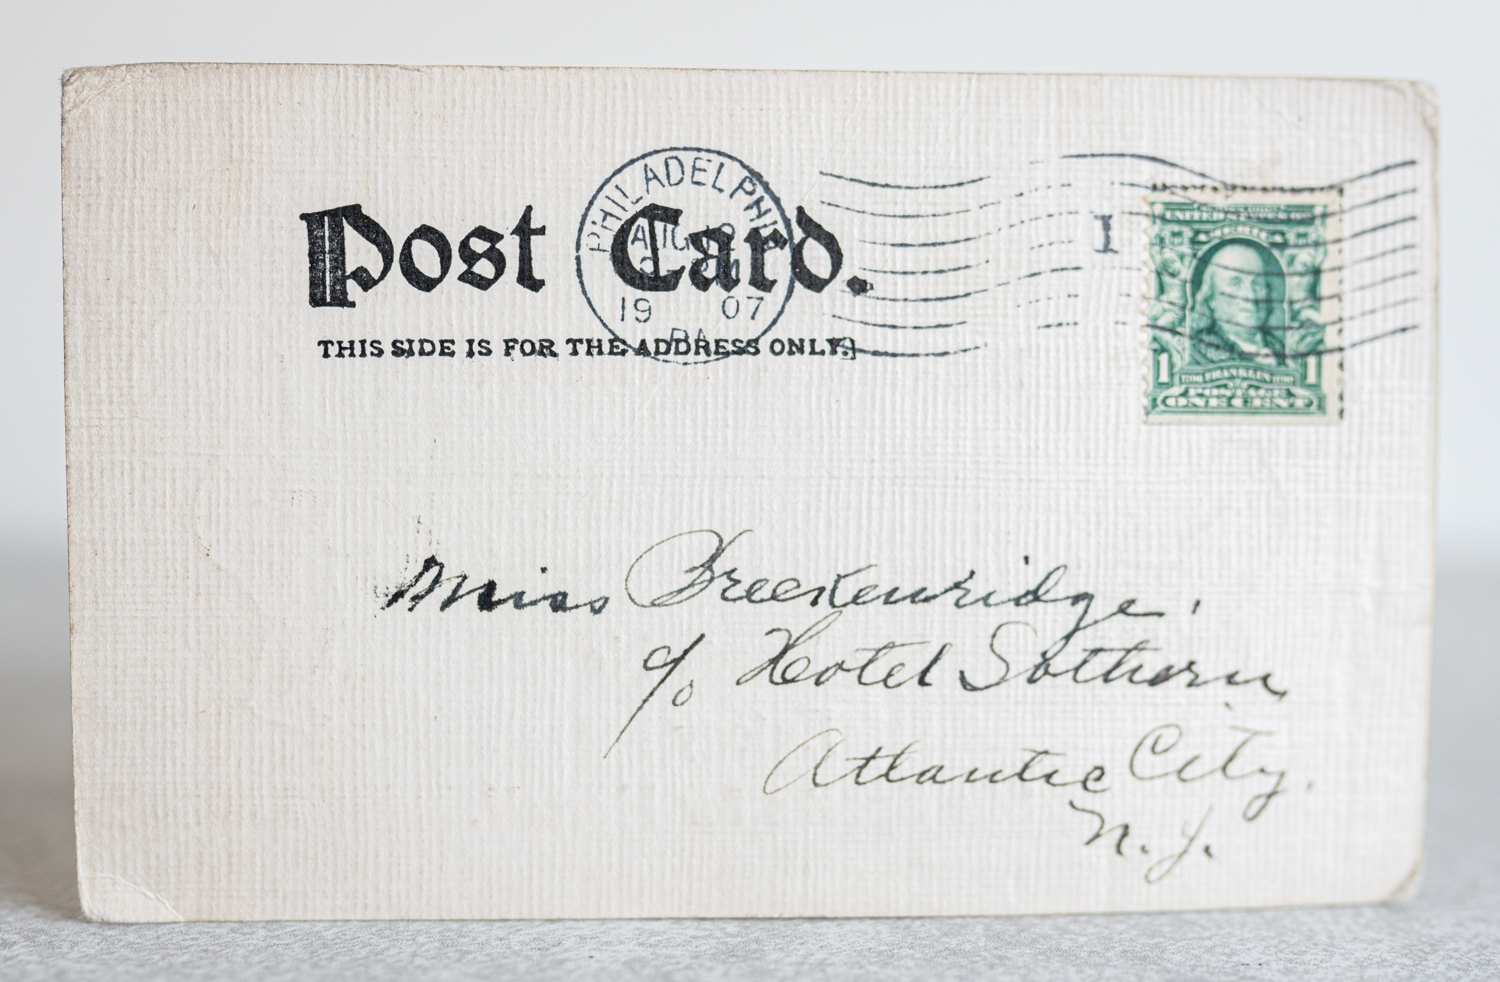 PHILADELPHIA
AUG
19 07
PA
Post Card.
THIS SIDE IS FOR THE ADDRESS ONLY.
I
UNITED STATES OF
AMERICA
1 FRANKLIN 1
POSTAGE
ONE CENT
Miss Breckenridge,
c/o Hotel Sothern
Atlantic City.
N. J.